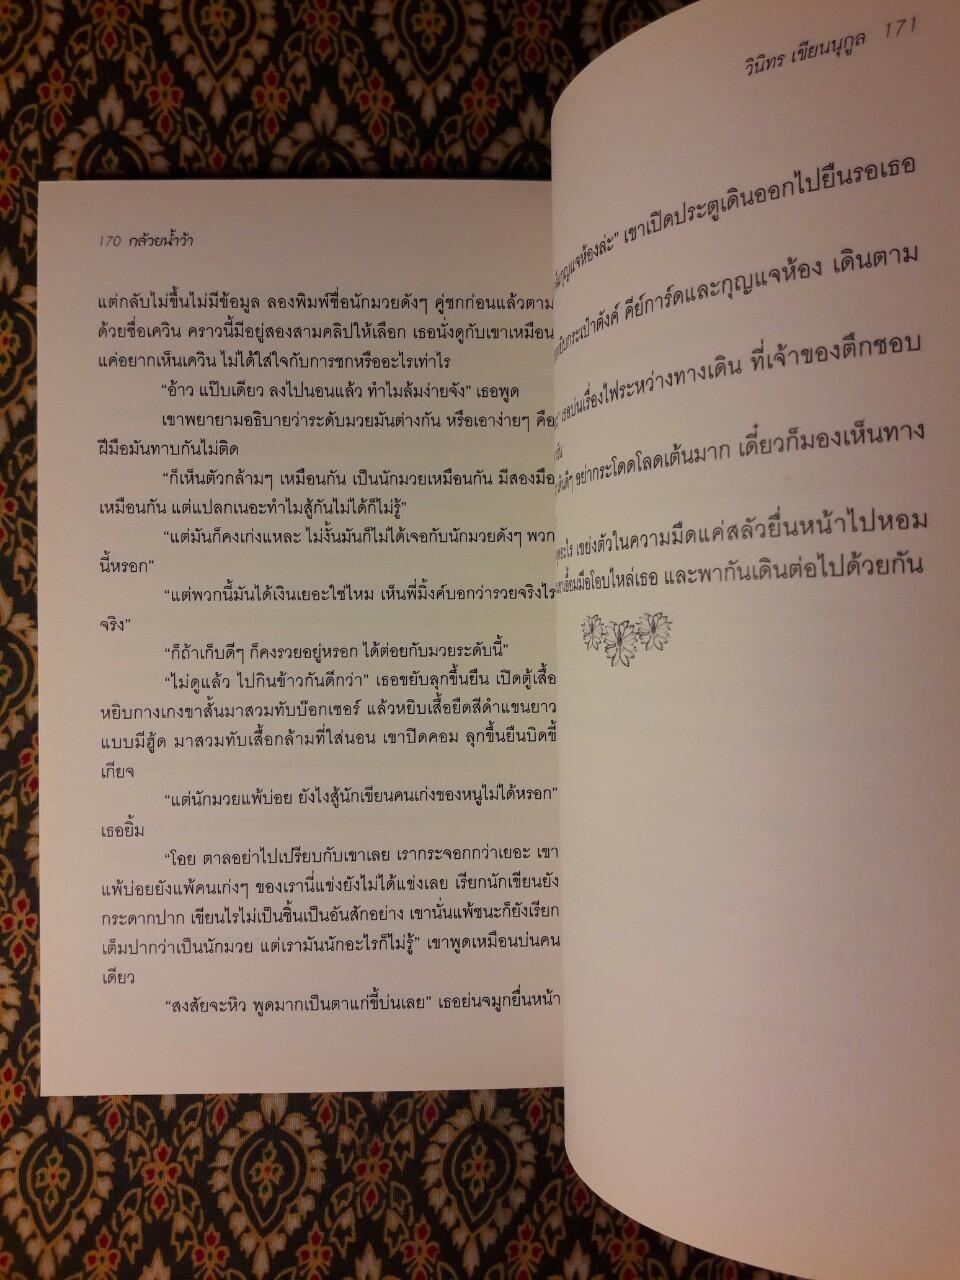 170 กล้วยน้ำว้า
แต่กลับไม่ขึ้นไม่มีข้อมูล ลองพิมพ์ชื่อนักมวยดังๆ คู่ชกก่อนแล้วตาม
ด้วยชื่อเควิน คราวนี้มีอยู่สองสามคลิปให้เลือก เธอนั่งดูกับเขาเหมือน
แค่อยากเห็นเควิน ไม่ได้ใส่ใจกับการชกหรืออะไรเท่าไร
“อ้าว แป๊บเดียว ลงไปนอนแล้ว ทำไมล้มง่ายจัง” เธอพูด
เขาพยายามอธิบายว่าระดับมวยมันต่างกัน หรือเอาง่ายๆ คือ
ฝีมือมันทาบกันไม่ติด
“ก็เห็นตัวกล้ามๆ เหมือนกัน เป็นนักมวยเหมือนกัน มีสองมือ
เหมือนกัน แต่แปลกเนอะทำไมสู้กันไม่ได้ก็ไม่รู้”
“แต่มันก็คงเก่งแหละ ไม่งั้นมันก็ไม่ได้เจอกับนักมวยดังๆ พวก
นี้หรอก”
“แต่พวกนี้มันได้เงินเยอะใช่ไหม เห็นพี่มิ้งค์บอกว่ารวยจริงไร
จริง”
“ก็ถ้าเก็บดีๆ ก็คงรวยอยู่หรอก ได้ต่อยกับมวยระดับนี้”
“ไม่ดูแล้ว ไปกินข้าวกันดีกว่า” เธอขยับลุกขึ้นยืน เปิดตู้เสื้อ
หยิบกางเกงขาสั้นมาสวมทับบ๊อกเซอร์ แล้วหยิบเสื้อยืดสีดำแขนยาว
แบบมีฮู้ด มาสวมทับเสื้อกล้ามที่ใส่นอน เขาปิดคอม ลุกขึ้นยืนบิดขี้
เกียจ
“แต่นักมวยแพ้บ่อย ยังไงสู้นักเขียนคนเก่งของหนูไม่ได้หรอก”
เธอยิ้ม
“โอย ตาลอย่าไปเปรียบกับเขาเลย เรากระจอกกว่าเยอะ เขา
แพ้บ่อยยังแพ้คนเก่งๆ ของเรานี่แข่งยังไม่ได้แข่งเลย เรียกนักเขียนยัง
กระดากปาก เขียนไรไม่เป็นชิ้นเป็นอันสักอย่าง เขานั่นแพ้ชนะก็ยังเรียก
เต็มปากว่าเป็นนักมวย แต่เรามันนักอะไรก็ไม่รู้” เขาพูดเหมือนบ่นคน
เดียว
“สงสัยจะหิว พูดมากเป็นตาแก่ขี้บ่นเลย” เธอย่นจมูกยื่นหน้า
วินิทร เขียนนุกูล 171
กุญแจห้องล่ะ” เขาเปิดประตูเดินออกไปยืนรอเธอ
หยิบกระเป๋าตังค์ คีย์การ์ดและกุญแจห้อง เดินตาม
เธอบ่นเรื่องไฟระหว่างทางเดิน ที่เจ้าของตึกชอบ
เดินดีๆ อย่ากระโดดโลดเต้นมาก เดี๋ยวก็มองเห็นทาง
อะไร เขย่งตัวในความมืดแค่สลัวยื่นหน้าไปหอม
เขาเอื้อมมือโอบไหล่เธอ และพากันเดินต่อไปด้วยกัน